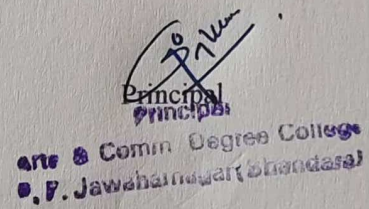 Principal
Principal
Arts & Comm Degree College
P. Jawaharnagar (Bhandara)